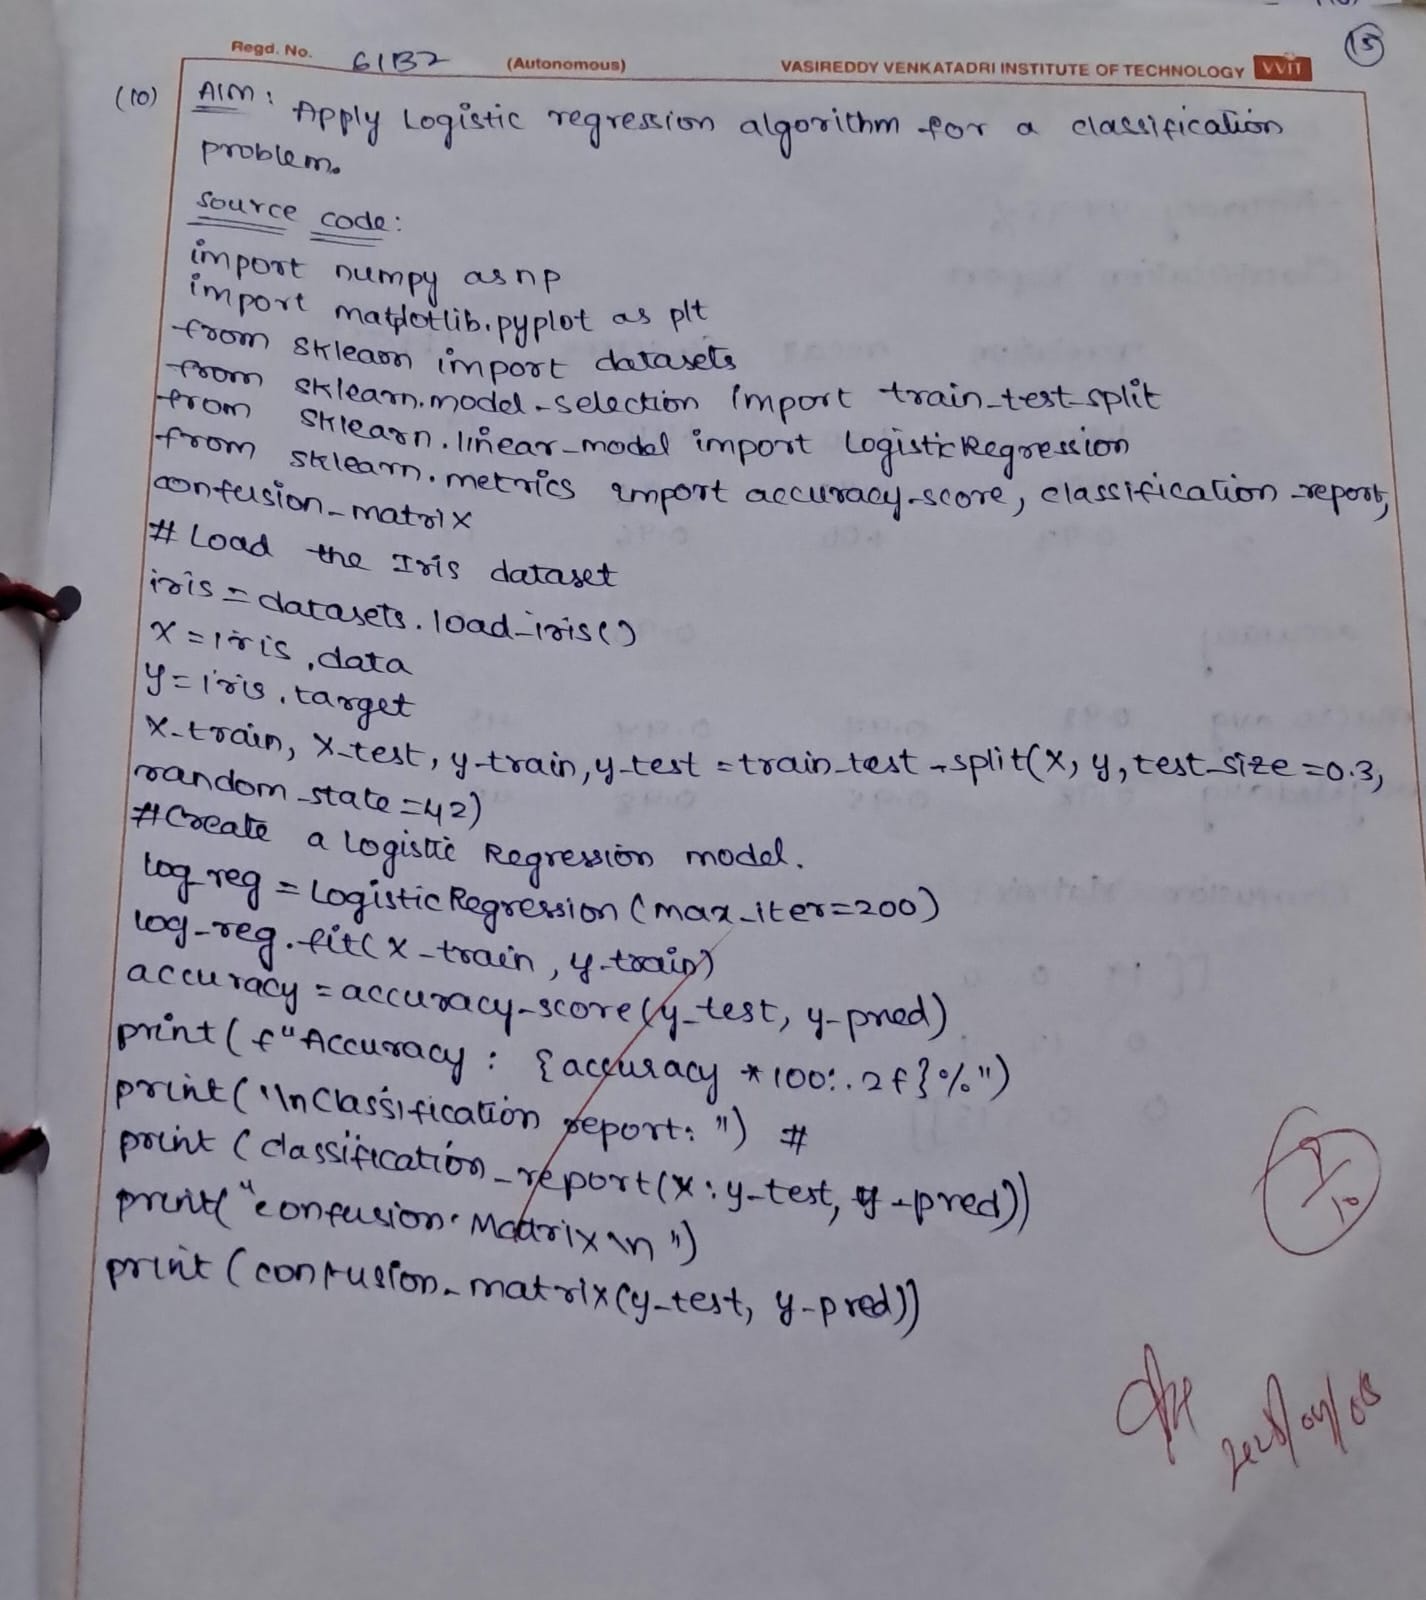 (15)
Regd. No. 61B2 (Autonomous) VASIREDDY VENKATADRI INSTITUTE OF TECHNOLOGY VVIT
(10) AIM: Apply Logistic regression algorithm for a classification
problem.
Source code:
import numpy as np
import matplotlib.pyplot as plt
from sklearn import datasets
from sklearn.model_selection import train_test_split
from sklearn.linear_model import LogisticRegression
from sklearn.metrics import accuracy_score, classification_report,
confusion_matrix
# Load the Iris dataset
iris = datasets.load_iris()
X = iris.data
y = iris.target
X_train, X_test, y_train, y_test = train_test_split(X, y, test_size=0.3,
random_state=42)
#Create a Logistic Regression model.
log_reg = LogisticRegression(max_iter=200)
log_reg.fit(X_train, y_train)
accuracy = accuracy_score(y_test, y_pred)
print(f"Accuracy: {accuracy *100:.2f}%")
print("\nClassification report:") #
print(classification_report(x:y_test, y_pred))
print("confusion Matrix\n")
print(confusion_matrix(y_test, y_pred))
10